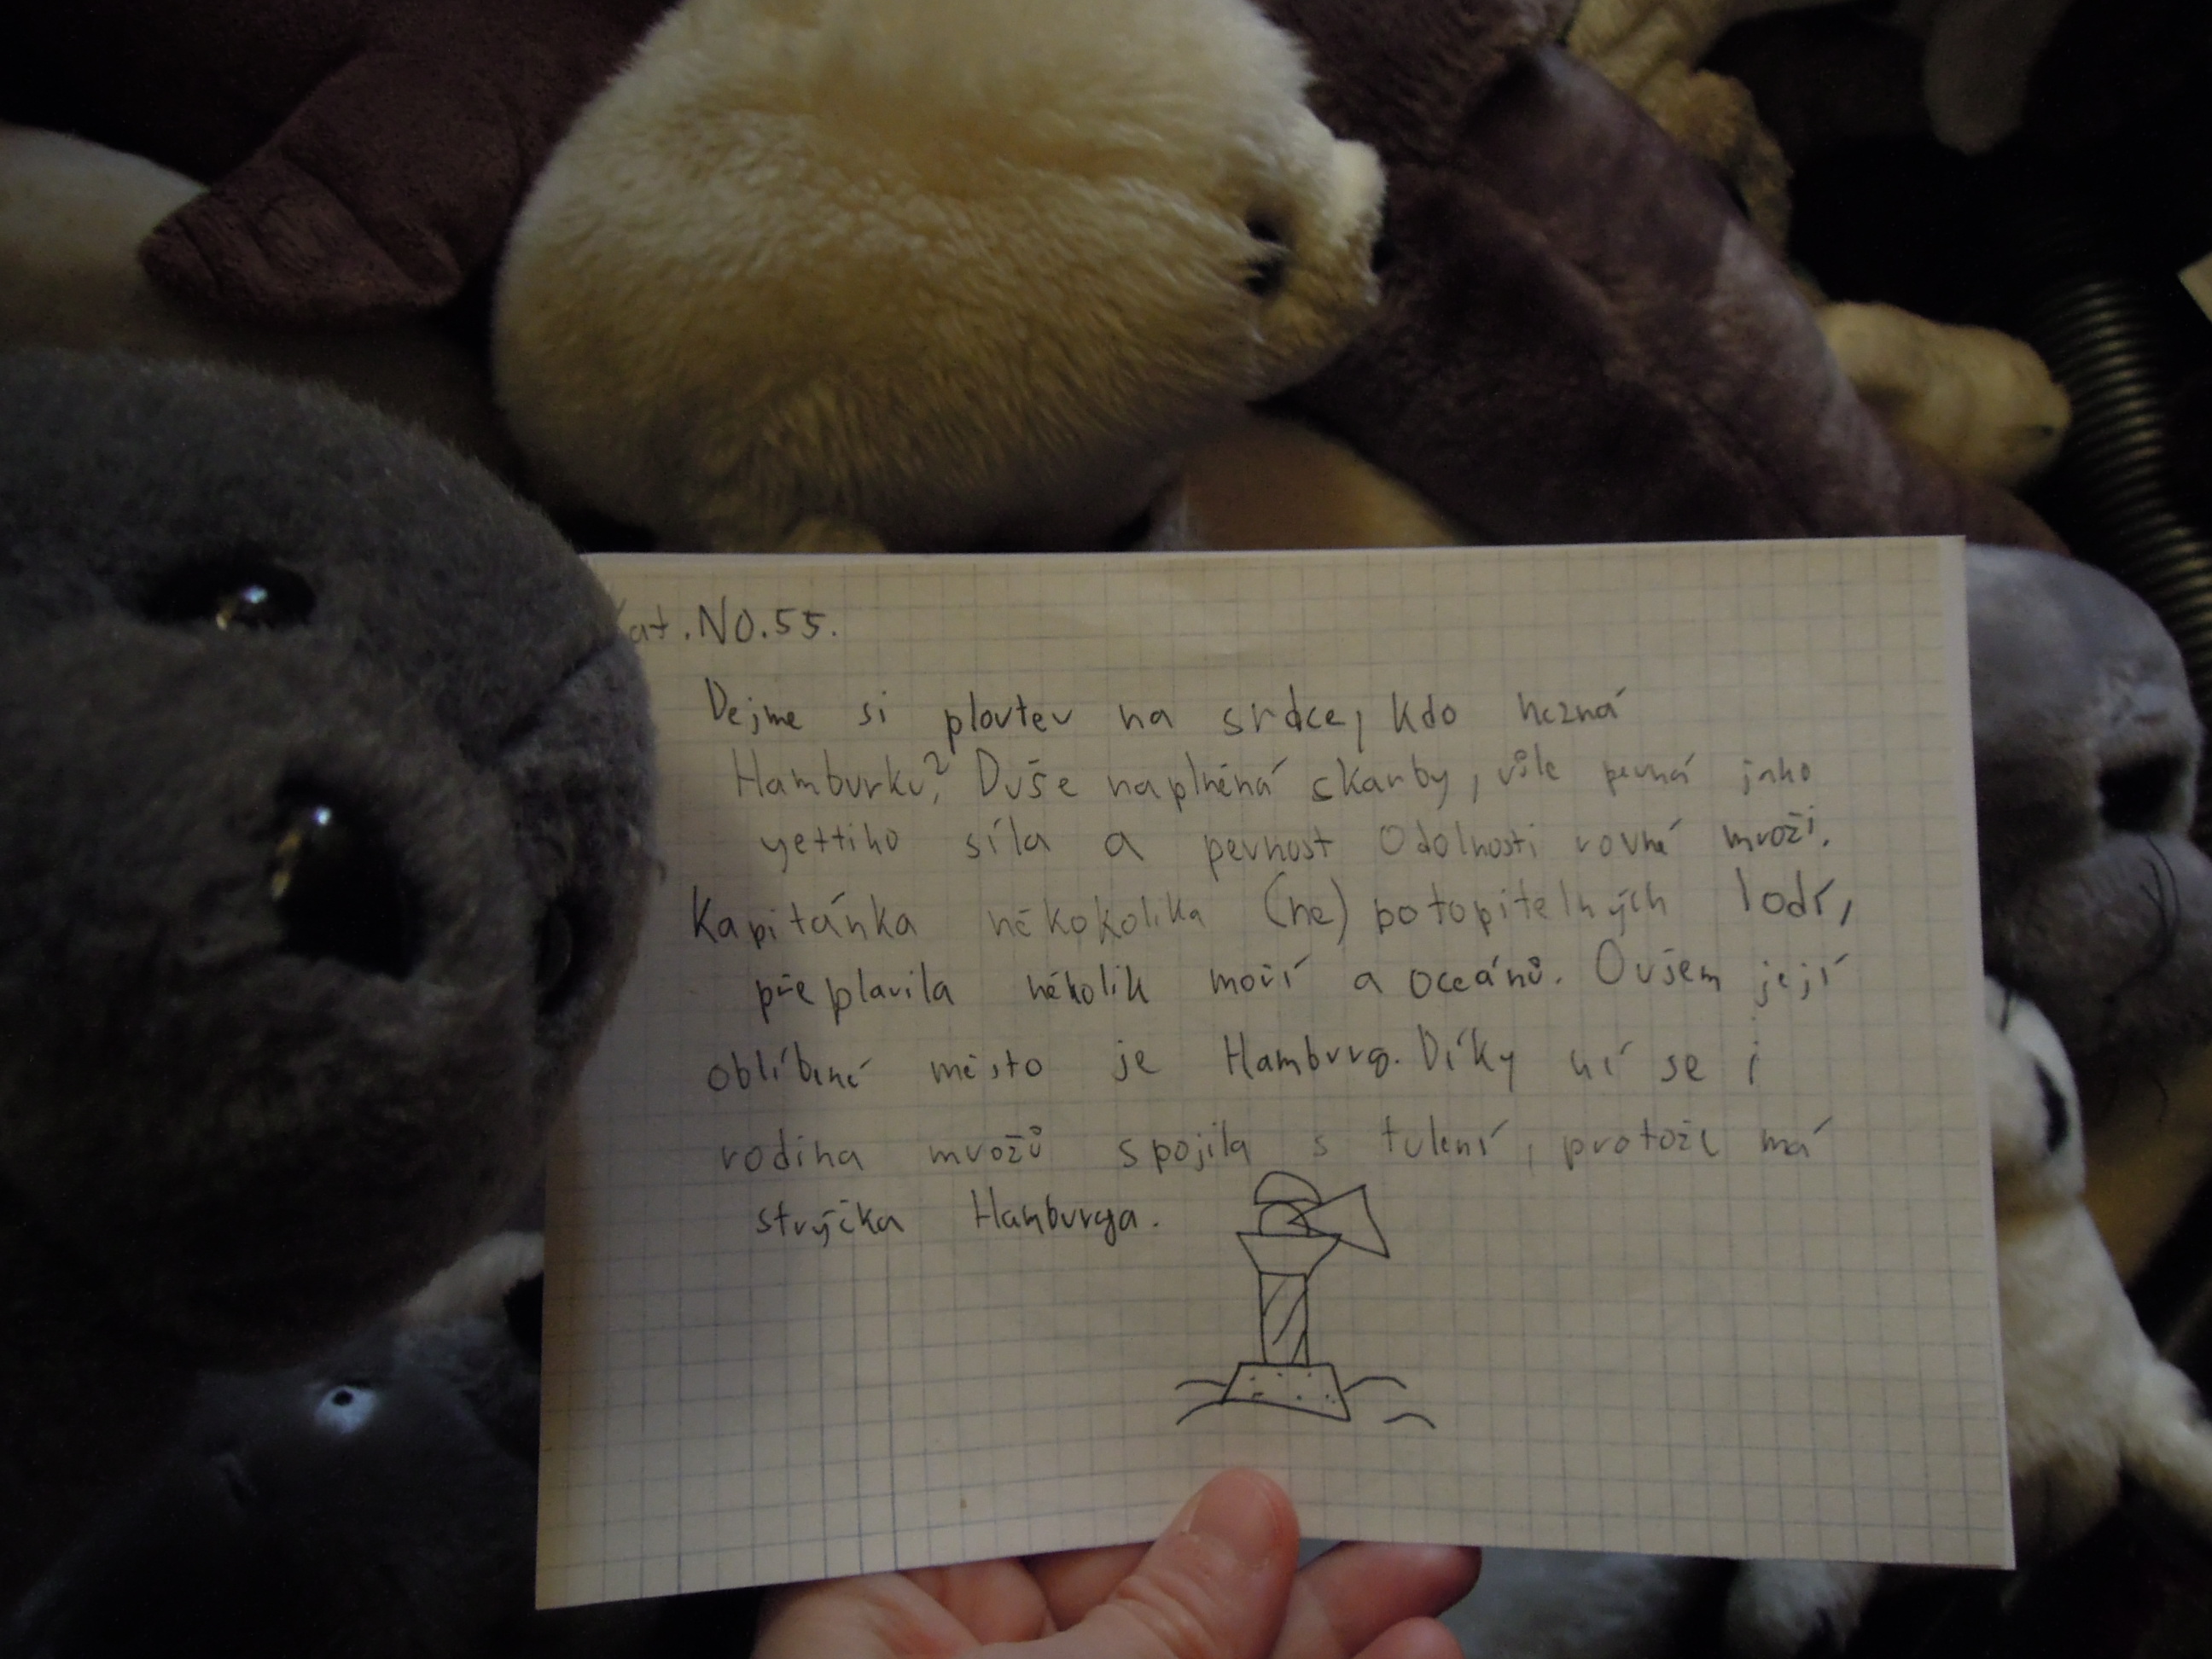 Kat. NO. 55.
Dejme si ploutev na srdce, kdo nezná
Hamburku? Duše naplněná skarby, vůle pevná jako
yettiho síla a pevnost odolnosti rovné mroži.
Kapitánka někokolika (ne) potopitelných lodí,
přeplavila několik moří a oceánů. Ovšem její
oblíbené město je Hamburg. Díky ní se i
rodina mrožů spojila s tulení, protože má
strýčka Hamburga.